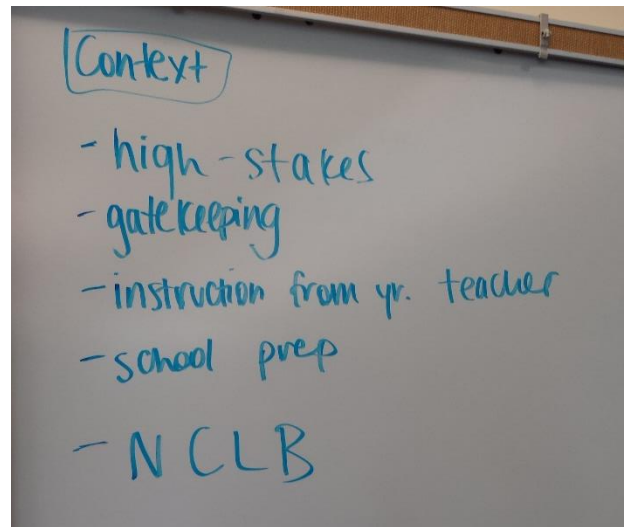 Context
- high-stakes
- gatekeeping
- instruction from yr. teacher
- school prep
- NCLB